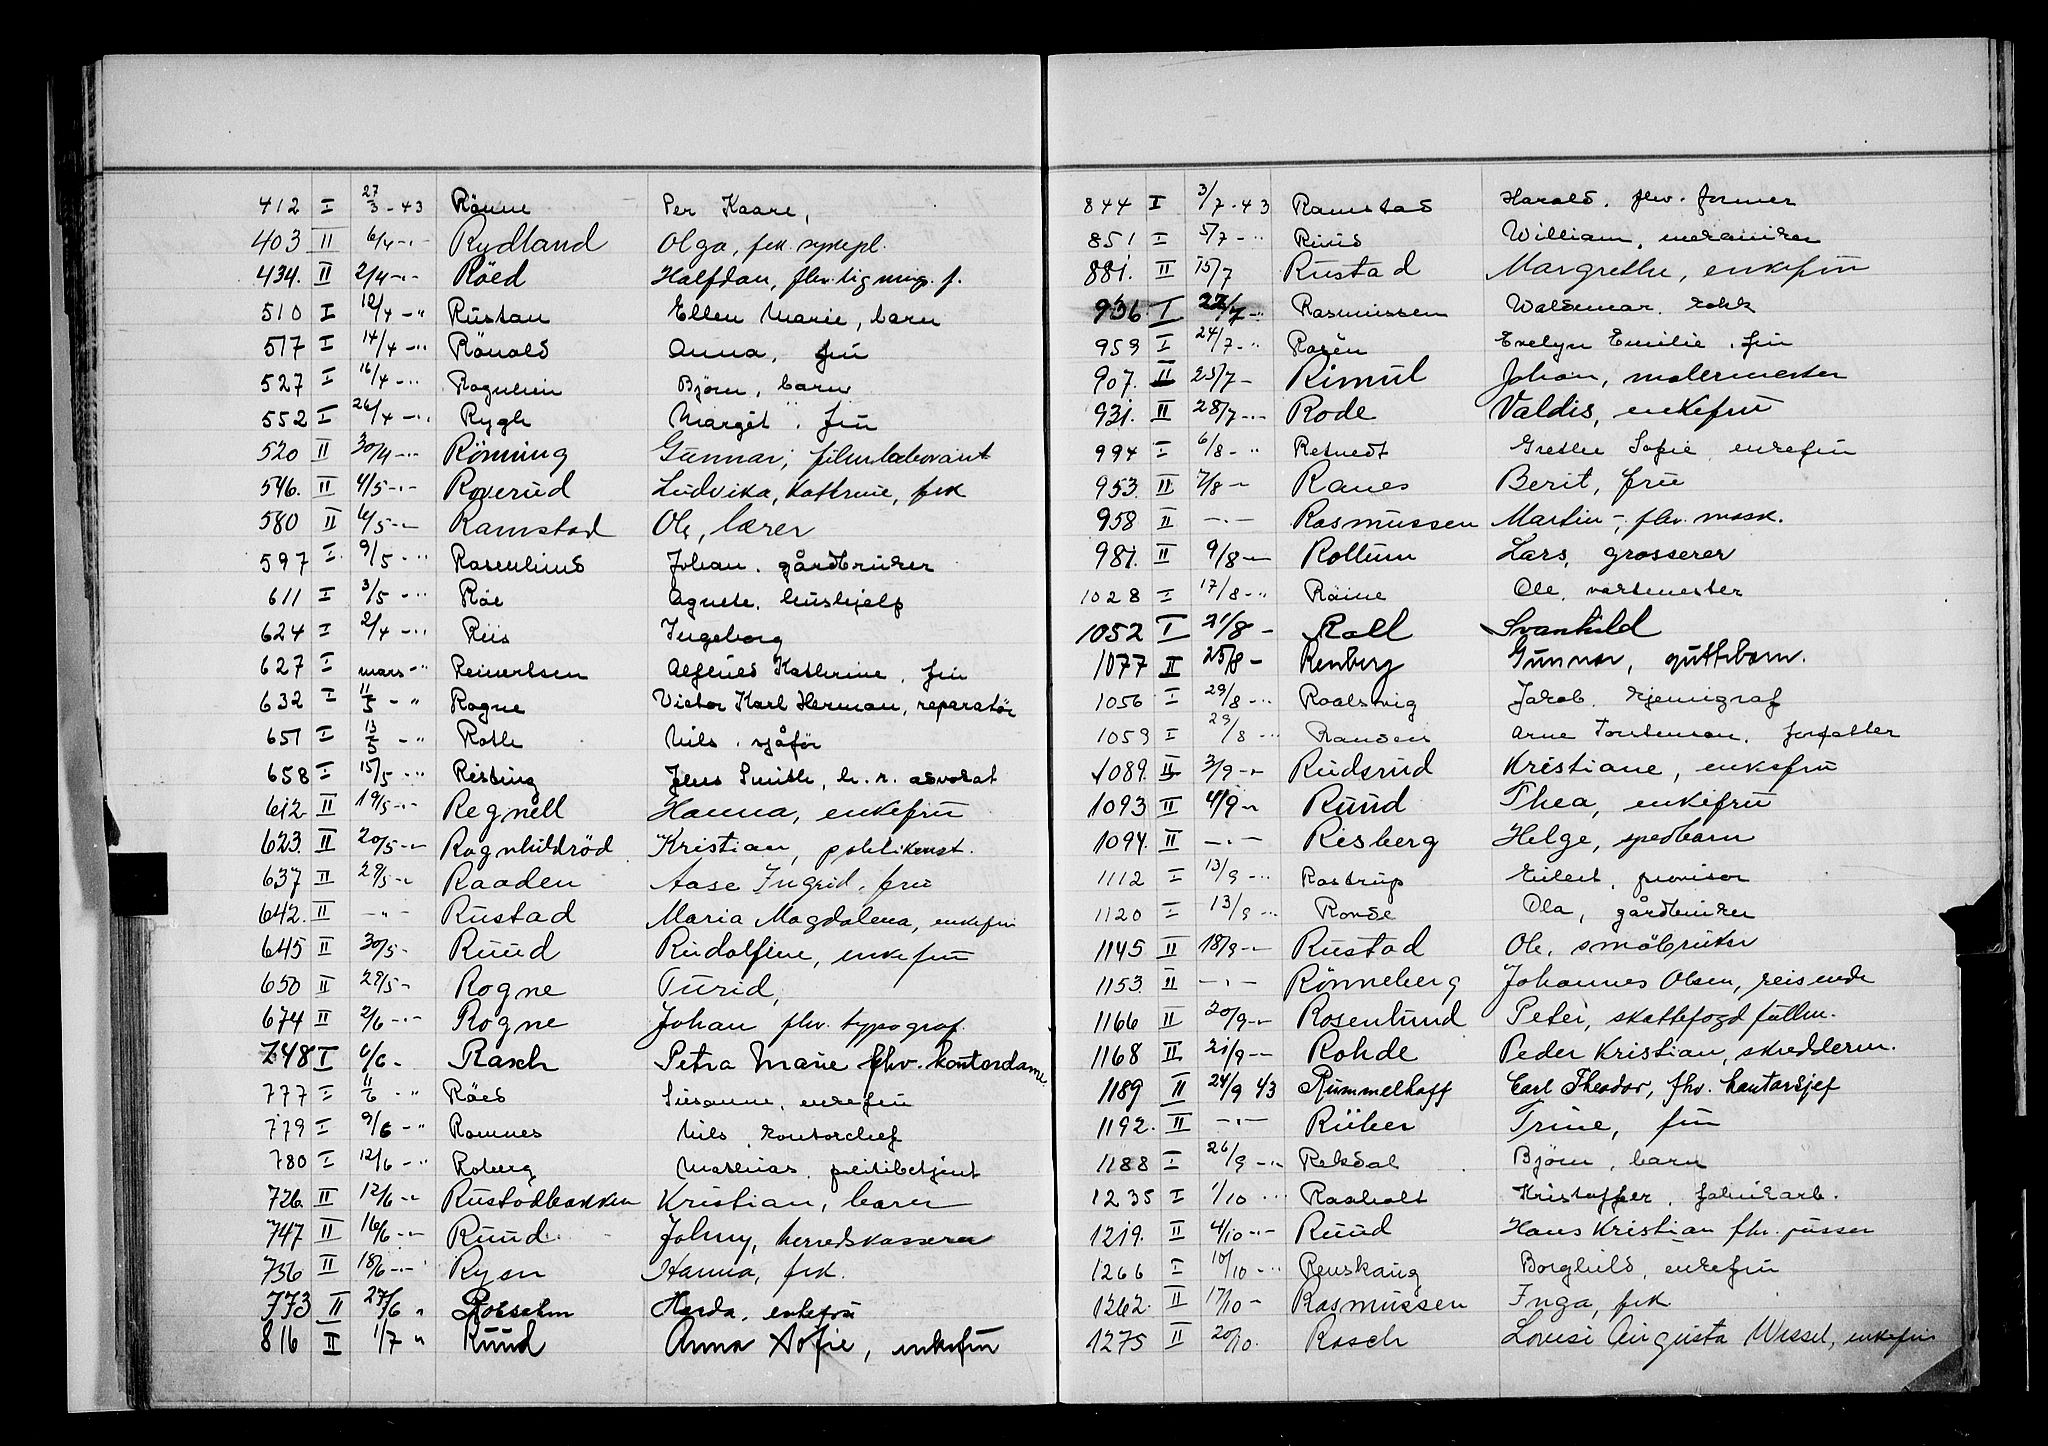 412 I 27/3-43 Rönne Per Kaare,
403 II 6/4-"- Rydland Olga, frk. sykepl.
434. II 2/4-"- Röed Halfdan, fhv. lign.
510 I 12/4-" Rustan Ellen Marie, barn
517 I 14/4-" Rönold Anna, fru
527 I 16/4-" Björn, barn
552 I 26/4-" Rygh Margit, fru
520 II 30/4-"- Rönning Gunnar, filmlaborant
546. II 4/5-"- Roverud Ludvika, Kathrine, frk
580 II 6/5-"- Ramstad Ole, lærer
597 I 9/5-" Rosenlund Johan. gårdbruker
611 I 3/5-" Röe Agnete. hushjelp
624 I 2/4-" Riis Ingeborg
627 I mars-" Reinertsen Alfhild Kathrine, fru
632 I 11/5-" Rogne Victor Karl Herman, reparatör
651 I 13/5-" Roth Nils. sjåför
658 I 15/5-" Risting Jens Smith, h. r. advokat
612 II 19/5-"- Regnell Hanna, enkefru
623. II 20/5-"- Ragnhildröd Kristian, politikonst.
637 II 29/5-"- Raaden Aase Ingrid, fru
642. II -"- Rustad Maria Magdalena, enkefru
645 II 30/5- Ruud Rudolfine, enkefru
650 II 29/5- Rogne Turid,
674 II 2/6-"- Rogne Johan fhv. typograf.
748 I 6/6- Rasch Petra Marie fhv. kontordame
777 I 11/6-" Röed Susanne, enkefru
779 I 9/6-" Romnes Nils, kontorchef
780 I 12/6-" Roberg Mathias. politibetjent
726. II 12/6-"- Rustadbakken Kristian, barn
747 II 16/6-"- Ruud Johny, herredskasserer
756 II 18/6-"- Rysn Hanna, frk.
773 II 27/6 " Herda, enkefru
816 II 1/7 " Ruud Anna Sofie, enkefru
844 I 3/7-43 Ramstad Harald. fhv. former
851 I 5/7-" William, mekaniker
881. II 15/7 Rustad Margrethe, enkefru
936 I 22/7-" Rasmussen Waldemar. kokk
959 I 24/7-" Rosén Evelyn Emilie, fru
907. II 25/7- Rimul Johan, malermester
931. II 28/7-"- Rode Valdis, enkefru
994 I 6/8-" Retvedt Grethe Sofie, enkefru
953. II 7/8-"- Ranes Berit, fru
958 II -"- Rasmussen Martin-, fhv. mask.
981. II 9/8-"- Rollum Lars, grosserer
1028 I 17/8-" Röine Ole, vaktmester
1052 I 21/8- Roll Svanhild
1077 II 25/8- Renberg Gunnar, guttebarn.
1056 I 29/8-" Roalsvig Jakob. kjemigraf
1059 I 29/8-" Randen Arne Torstensen. forfatter
1089. II 3/9-"- Rudsrud Kristiane, enkefru
1093 II 4/9-"- Ruud Thea, enkefru
1094. II -"- Risberg Helge, spedbarn
1112 I 13/9-" Rostrup Eilert, provisor
1120 I 13/9-" Ronde Ola, gårdbruker
1145 II 18/9-"- Rustad Ole, småbruker
1153. II -"- Rönneberg Johannes Olsen, reisende
1166 II 20/9-"- Rosenlund Peter, skattefogd fullm.
1168 II 21/9-"- Rohde Peder Kristian, skredderm.
1189 II 24/9 43 Rummelhoff Carl Theodor, fhv. kontorsjef
1192. II -"- Rüber Trine, fru
1188 I 26/9-" Rekdal Björn, barn
1235 I 1/10-" Raaholt Kristoffer, fabrikarb.
1219. II 4/10-"- Ruud Hans Kristian fhv. pusser
1266 I 10/10-" Renskaug Borghild, enkefru
1262. II 17/10- Rasmussen Inga, frk
1275 II 20/10. Rasch Lovise Augusta Wessel, enkefru